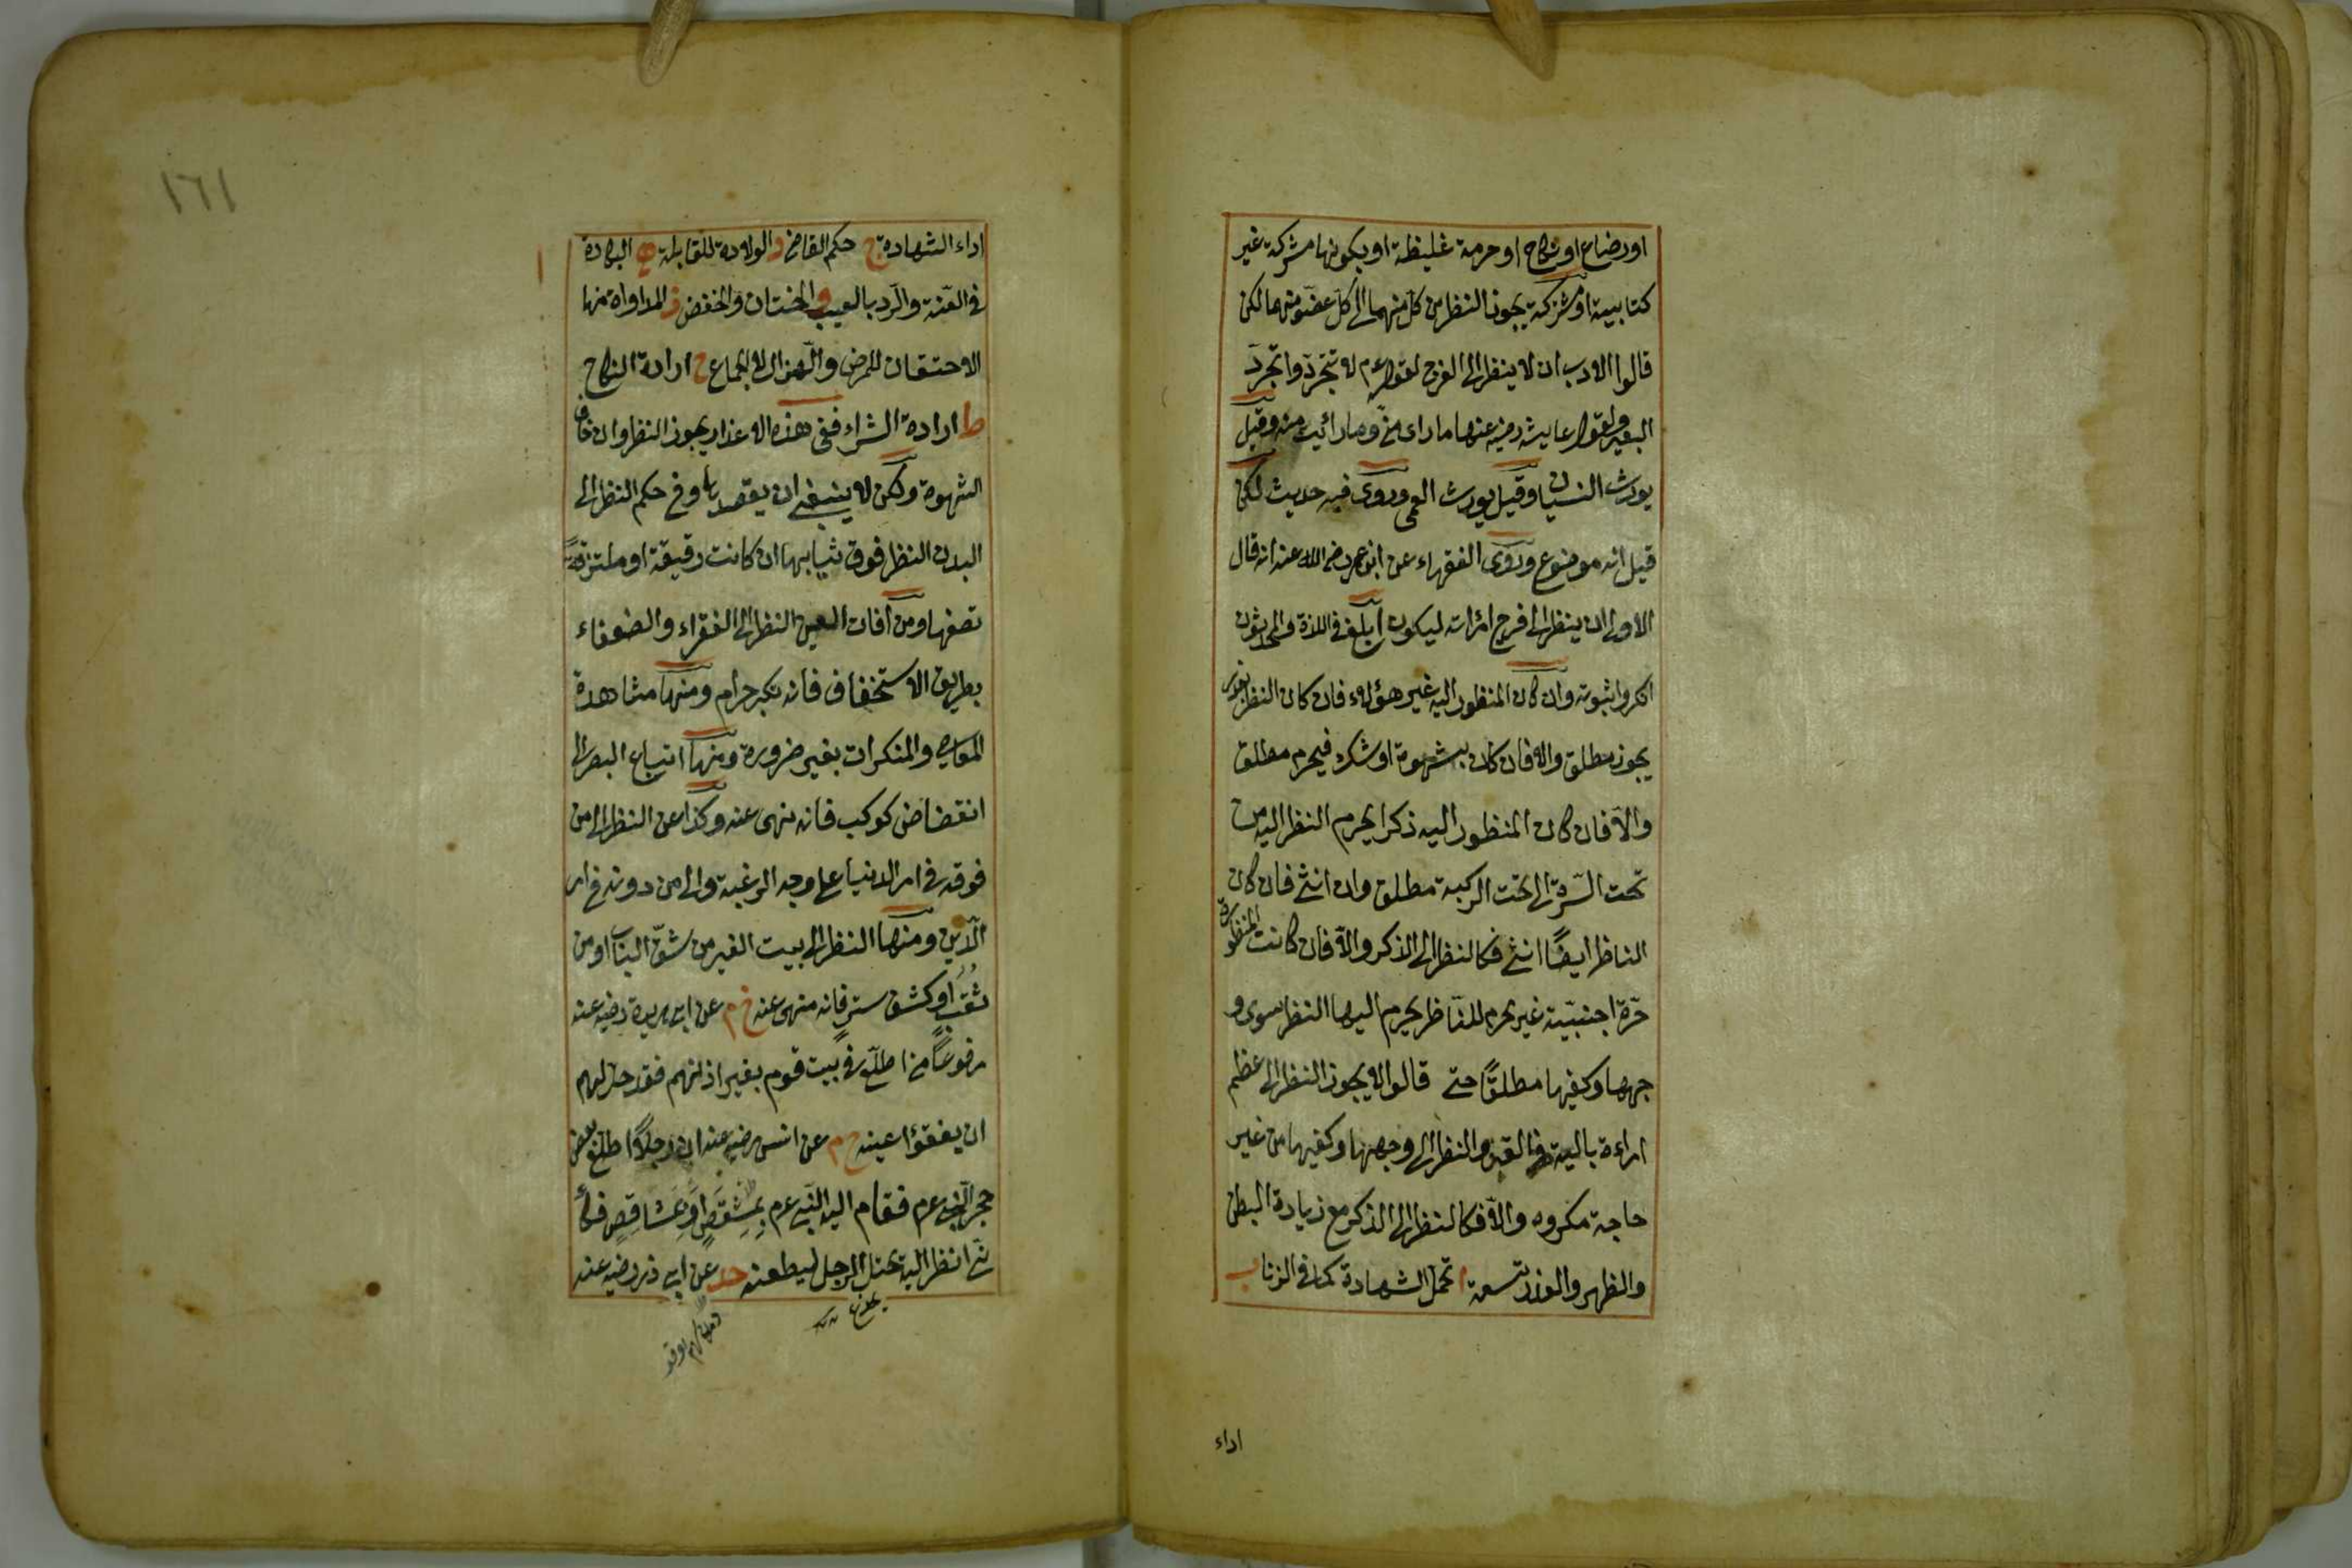 او رضاع او نكاح او حرمة غليظة او بكونها مشركة غير
كتابية او مشتركة يجوز النظر من كل منهما الى كل عضو منهما لكن
قالوا الادب ان لا ينظر الى الفرج لقوله عم لا تتجردا تجرد
البعير ولقول عايشه رضيه عنها ما راى منى وما رائيت منه وقيل
يورث النسيان وقيل يورث العمى وروى فيه حديث لكن
قيل انه موضوع وروى الفقهاء عن ابن عمر رضى الله عنه انه قال
الاولى ان ينظر الى فرج امرأته ليكون ابلغ فى اللذة والمحدثون
انكروا ثبوته وان كان المنظور اليه غير هؤلاء فان كان النظر بعذر
يجوز مطلق والا فان كان بشهوة او شك فيحرم مطلق
والا فان كان المنظور اليه ذكرا يحرم النظر اليه من
تحت السرة الى تحت الركبة مطلق وان انثى فان كان
الناظر ايضًا انثى فكالنظر الى الذكر والا فان كانت المنظورة
حرّة اجنبيّة غير محرم للناظر يحرم اليها النظر سوى و
جهها وكفيها مطلقًا حتى قالوا لا يجوز النظر الى عظم
امراءة بالية فى القبر والنظر الى وجهها وكفيها من غير
حاجة مكروه والا فكالنظر الى الذكر مع زيادة البطن
والظهر والعذر تسعة ا تحمل الشهادة كما فى الزنا ب
اداء
١٦١
اداء الشهادة ج حكم القاضى د الولادة للقابلة ه البكارة
فى العنة والرد بالعيب و الختان والخفض ز المداواة منها
الاحتقان للمرض والهزال لا للجماع ح ارادة النكاح
ط ارادة الشراء ففى هذه الاعذار يجوز النظر وان خاف
الشهوة ولكن لا ينبغى ان يقصدها وفى حكم النظر الى
البدن النظر فوق ثيابها ان كانت رقيقة او ملتزقة
تصفها ومن افات العين النظر الى الفقراء والضعفاء
بطريق الاستخفاف فانه كبر حرام ومنها مشاهدة
المعاصى والمنكرات بغير ضرورة ومنها اتباع البصر الى
انقضاض كوكب فانه نهى عنه وكذا عن النظر الى من
فوقه فى امر الدنيا على وجه الرغبة والى من دونه فى امر
الدين ومنها النظر الى بيت الغير من شقّ الباب او من
ثقب او كشف ستر فانه منهى عنه خ م عن ابى هريرة رضيه عنه
مرفوعًا من اطلع فى بيت قوم بغير اذنهم فقد حل لهم
ان يفقؤا عينه خ م عن انس رضيه عنه ان رجلاً اطلع بعض
حجر النبى عم فقام اليه النبى عم بمشقص او بمشاقص فكأ
نى انظر اليه يختل الرجل ليطعنه حد عن ابى ذر رضيه عنه